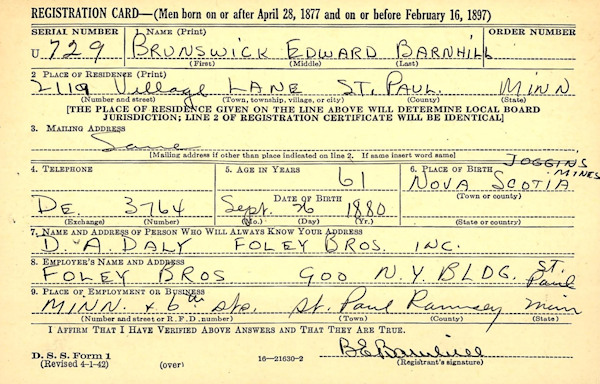 REGISTRATION CARD—(Men born on or after April 28, 1877 and on or before February 16, 1897)
SERIAL NUMBER 1. NAME (Print) ORDER NUMBER
U 729 BRUNSWICK EDWARD BARNHILL
(First) (Middle) (Last)
2. PLACE OF RESIDENCE (Print)
2119 Village LANE ST. PAUL. MINN
(Number and street) (Town, township, village, or city) (County) (State)
[THE PLACE OF RESIDENCE GIVEN ON THE LINE ABOVE WILL DETERMINE LOCAL BOARD
JURISDICTION; LINE 2 OF REGISTRATION CERTIFICATE WILL BE IDENTICAL]
3. MAILING ADDRESS
Same
[Mailing address if other than place indicated on line 2. If same insert word same]
4. TELEPHONE 5. AGE IN YEARS 6. PLACE OF BIRTH
JOGGINS MINES
61 NOVA SCOTIA
DATE OF BIRTH (Town or county)
DE. 3764 Sept. 26 1880
(Exchange) (Number) (Mo.) (Day) (Yr.) (State or country)
7. NAME AND ADDRESS OF PERSON WHO WILL ALWAYS KNOW YOUR ADDRESS
D. A. DALY FOLEY BROS. INC.
8. EMPLOYER'S NAME AND ADDRESS
FOLEY BROS 900 N.Y. BLDG. ST. Paul
9. PLACE OF EMPLOYMENT OR BUSINESS
MINN. & 6th Sts. St. Paul Ramsey Minn
(Number and street or R. F. D. number) (Town) (County) (State)
I AFFIRM THAT I HAVE VERIFIED ABOVE ANSWERS AND THAT THEY ARE TRUE.
D. S. S. Form 1
(Revised 4-1-42) (over) 16—21630-2
B E Barnhill
(Registrant's signature)